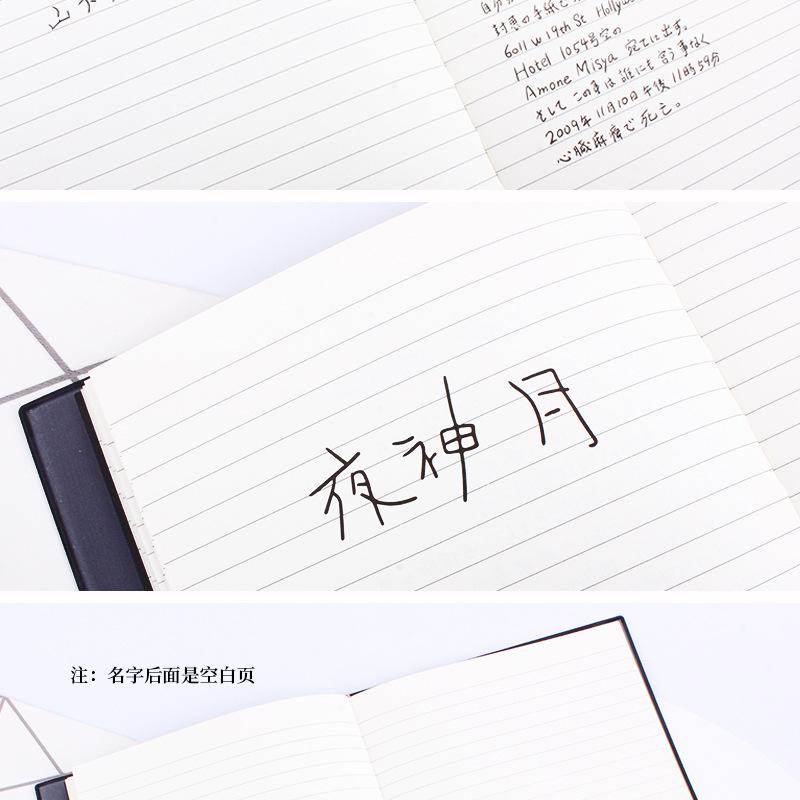 封悪の手紙で
6011 W 19th St Hollyw
Hotel 1054号室の
Amone Misya 宛てに出す。
そして この事は 誰にも 言う事なく
2009年 11月10日 午後 11時59分
心臓麻痺で 死亡。
夜神 月
注：名字后面是空白页